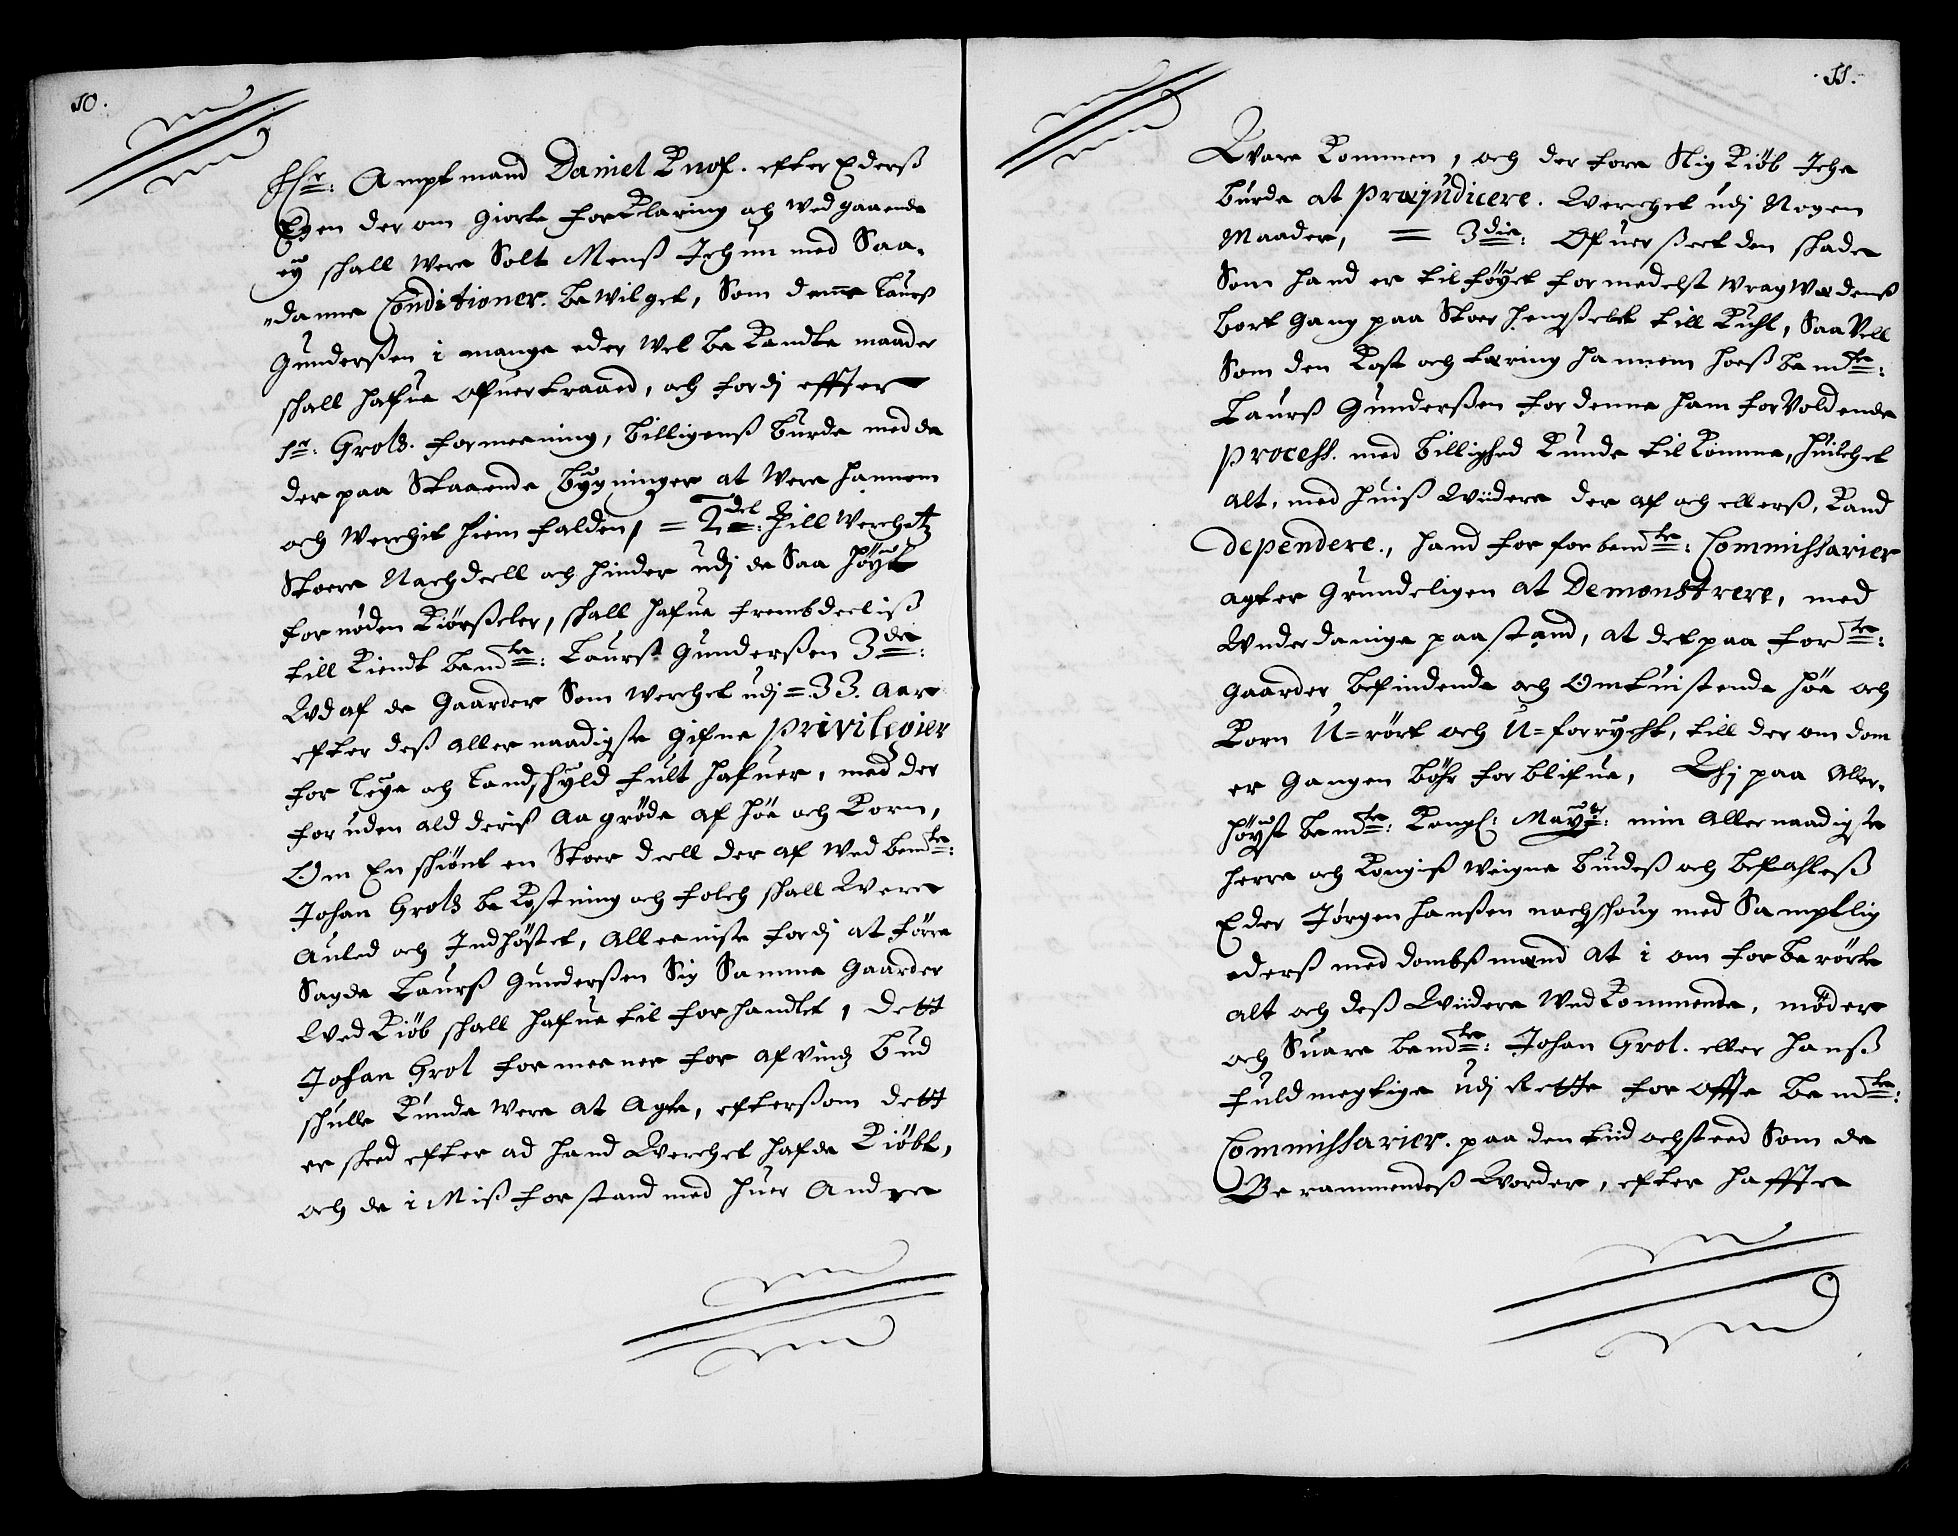 10.
Hr: Ampt mand Daniel Knof. efter Ederß
Egen der om giorte forklaring och wed gaaende
ey skall were Solt Menß Ichun med Saa„
„danne Conditioner. bewilget, Som denne Laurß
Gunderßen i mange eder wel be Kandte maader
skall hafue ofuertraaed, och fordj effter
Hr: Grots. formeening, billigenß burde med de
der paa Staaende bygninger at were hannem
och werchit hiem falden, = 2del: Till werchetz
Stoere Nachdeell och hinder udj de Saa höyst
fornøden Kiörßeler, skall hafue frembdeeliß
till Kiendt bemte: Laurß Gunderßen 3de:
Wd af de Gaarder Som werchet udj = 33. Aar
efter deß aller naadigste gifne Privilegier
for Leye och Landskyld fult hafuer, med der
foruden ald deriß Aa gröde af Höe och Korn,
Om En skiönt en Stoer deell der af wed bemte:
Johan Grots be Kostning och folch skall were
Auled och Indhöstet, Alleeniste fordj at förre
Sagde Laurß Gunderßen Sig Samme Gaarder
wed Kiöb skall hafue til forhandlet, dett
Johan Grot formeener for afvindz bud
skulle Kunde were at Agte, efterßom dett
er skeed efter ad hand Werchet hafde Kiöbt,
och de i Miß forstand med huer Andre
11.
Ware Kommen, och der fore Slig Kiöb Iche
burde at præjudicere. Werchet udj Nogen
Maader, = 3die: Ofuerßeet den skade
Som hand er tilföyet formedelst wragwedenß
bort gang paa Stoer hengßelet till Kuhl, Saa Vell
Som den Kost och tæring hannem hoeß bemte:
Laurß Gunderßen for denne ham forvoldende
Process. med billighed Kunde til Komme, huilchet
alt, med huiß Widere der af och ellerß, Kand
dependere., hand for forbemte: Commissarier
agter Grundeligen at Demonstrere, med
Wnderdanige paastand, at det paa forte:
Gaarder befindende och Omtuistende Höe och
Korn U=rört och U=forrycht, till der om dom
er gangen böhr forblifue, Thj paa Aller„
höyst bemte: Kongl: Maytz: min Allernaadigste
herre och Kongiß weigne budeß och befahleß
Eder Jørgen Hanßen nachskoug med Samptlig
ederß med dombßmænd at i om forberörte
alt och deß Widere wed Kommende, möder
och Suare bemte: Johan Grot. eller hanß
fuldmegtige udj Rette for offte bemte:
Commissarier. paa den tiid och sted Som de
Berammendeß Worder, efter hafftte